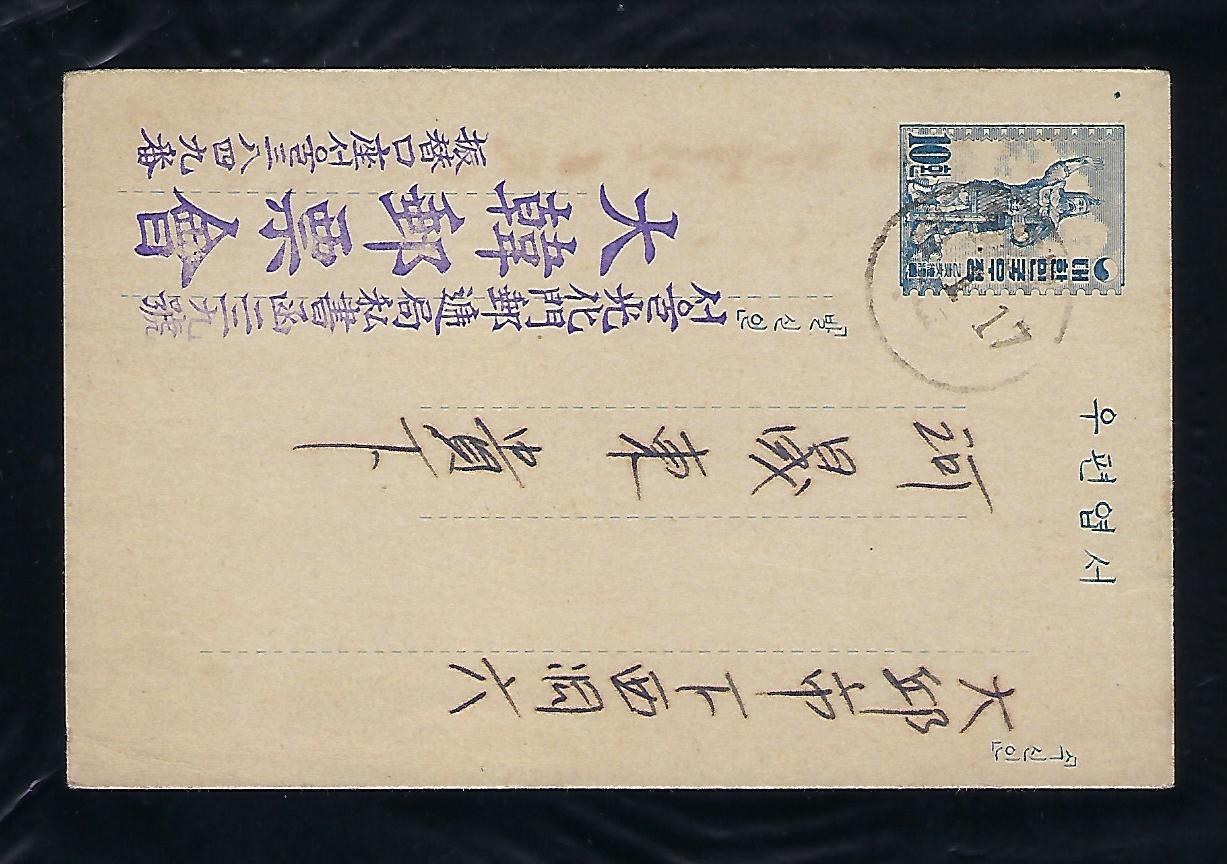 우편엽서
대한민국우정
10환
17
수신인
大邱市下西洞六
河晟東 貴下
발신인
서울光化門郵遞局私書函三二九號
大韓郵票會
振替口座서울三八四九番